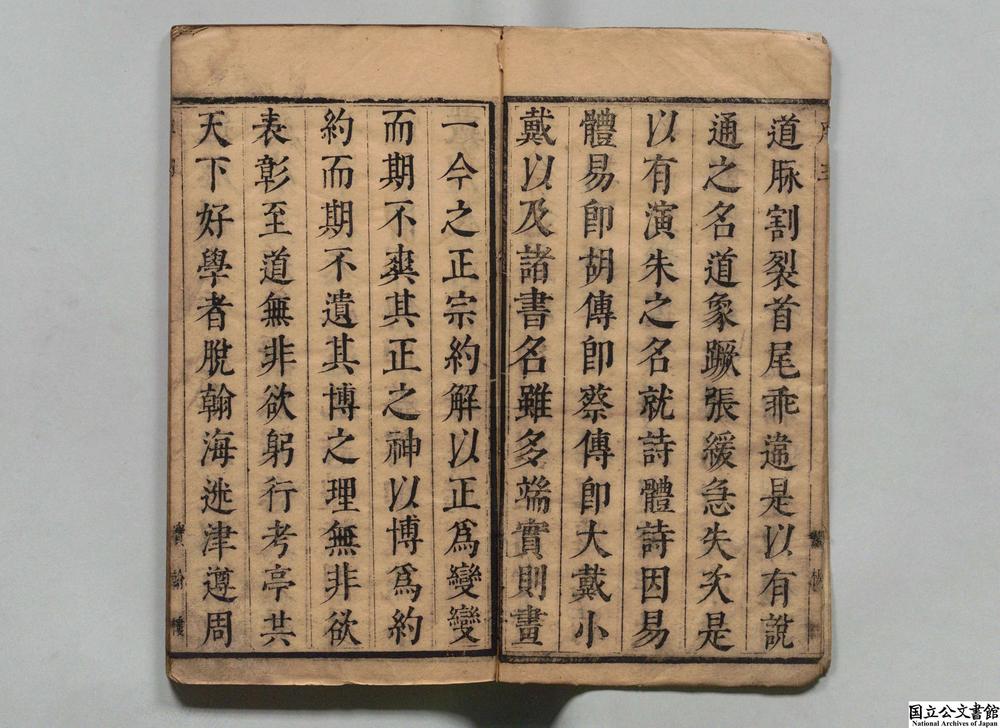 道脉割裂首尾乖違是以有說
通之名道象蹶張緩急失次是
以有演朱之名就詩體詩因易
體易即胡傳即蔡傳即大戴小
戴以及諸書名雖多端實則畫
一今之正宗約解以正爲變變
而期不爽其正之神以博爲約
約而期不遺其博之理無非欲
表彰至道無非欲躬行考亭共
天下好學者脫翰海迷津遵周
寶翰樓
国立公文書館
National Archives of Japan